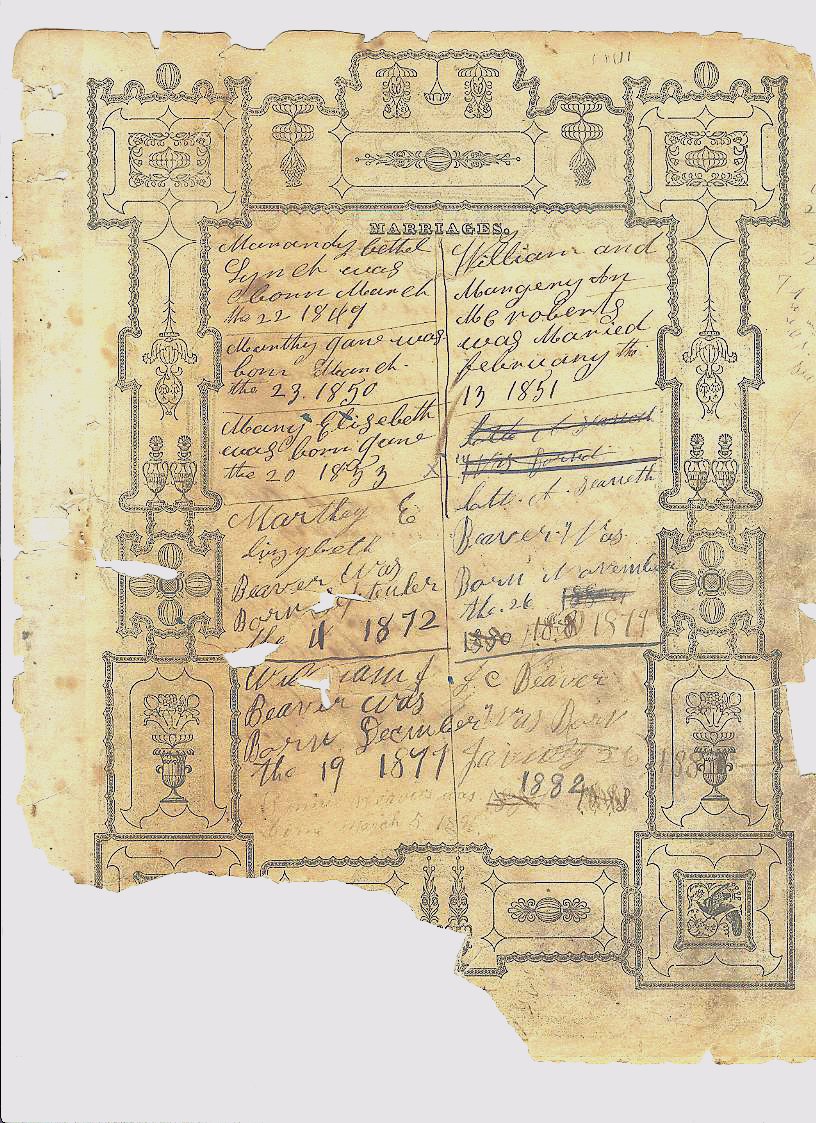 MARRIAGES.
Manandy bethel
Lynch was
born March
the 22 1849
Marthy Jane was
born March
the 23. 1850
Mary Elizebeth
was born Jane
the 20 1853 X
Marthey E
lizybeth
Beaver was
Born September
the 4 1872
William J
Beaver was
Born December
the 19 1877
was
born March 5
William and
Margery An
Mc roberts
was Maried
february the
13 1851
Was Borned
Beaver Was
Born November
the 26
1880 1879
J C Beaver
Was Born
26 188
1882